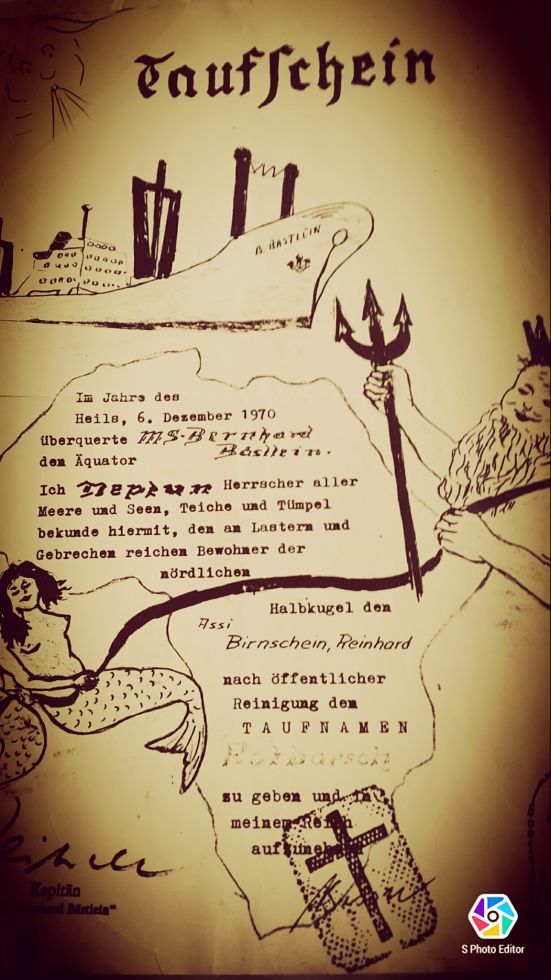 Taufschein
B. BÄSTLEIN
Im Jahre des
Heils, 6. Dezember 1970
überquerte MS. Bernhard
Bästlein.
den Äquator
Ich Neptun Herrscher aller
Meere und Seen, Teiche und Tümpel
bekunde hiermit, den an Lastern und
Gebrechen reichen Bewohner der
nördlichen
Halbkugel den
Assi
Birnschein, Reinhard
nach öffentlicher
Reinigung den
TAUFNAMEN
Rotbarsch
zu geben und in
meinem Reich
aufzunehmen
Kapitän
Bernhard Bästlein"
S Photo Editor